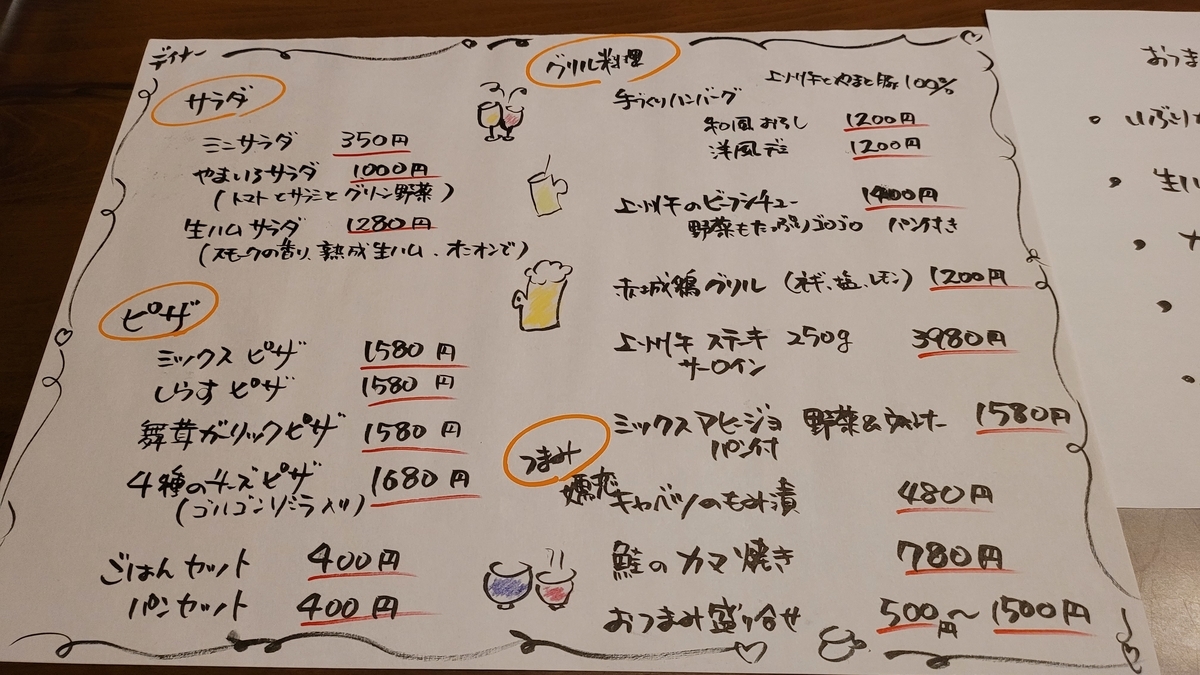 ディナー
サラダ
ミニサラダ 350円
やまいろサラダ 1000円
(トマトとサラミとグリーン野菜)
生ハムサラダ 1280円
(スモークの香り、熟成生ハム、オニオンで)
ピザ
ミックスピザ 1580円
しらすピザ 1580円
舞茸ガーリックピザ 1580円
4種のチーズピザ 1680円
(ゴルゴンゾーラ入り)
ごはんセット 400円
パンセット 400円
グリル料理
上州牛とやまと豚 100%
手づくりハンバーグ
和風おろし 1200円
洋風デミ 1200円
上州牛のビーフシチュー 1400円
野菜もたっぷりゴロゴロ パン付き
赤城鶏グリル (ネギ、塩、レモン) 1200円
上州牛ステーキ 250g 3980円
サーロイン
つまみ
ミックスアヒージョ 野菜& 1580円
パン付
キャベツのもみ漬 480円
鮭のカマ焼き 780円
おつまみ盛り合せ 500円〜1500円
おつま
いぶり
生ハ